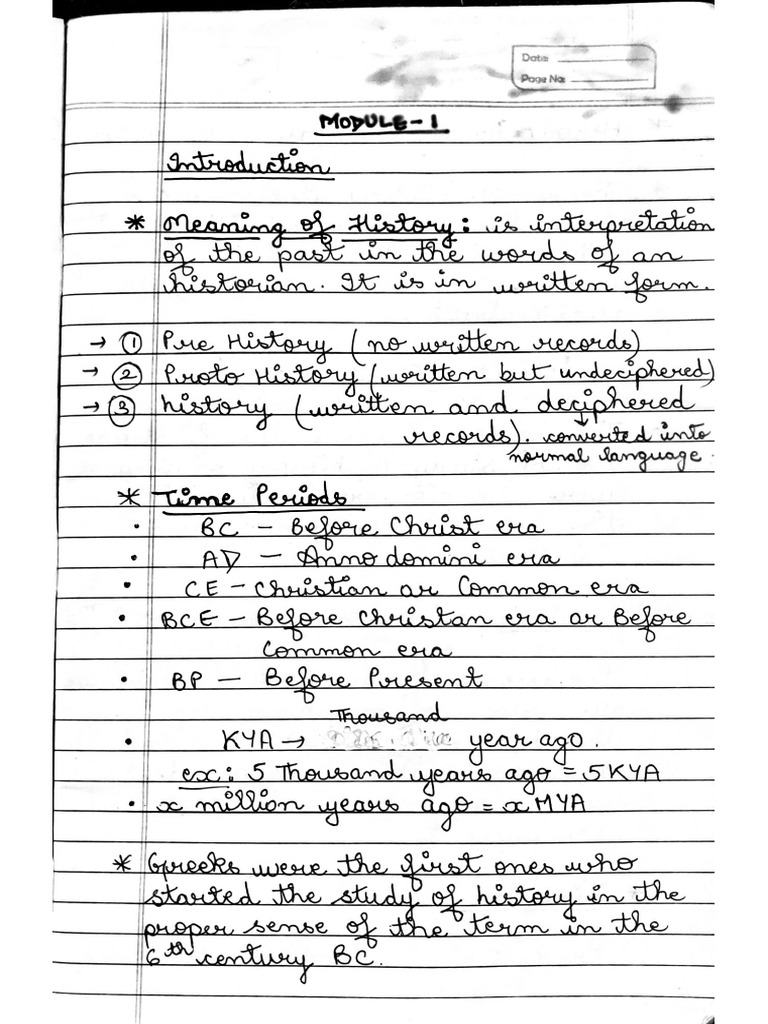 Date:
Page No:
MODULE-1
Introduction
* Meaning of History: is interpretation
of the past in the words of an
historian. It is in written form.
→ ① Pre History (no written records)
→ ② Proto History (written but undeciphered)
→ ③ history (written and deciphered
records). converted into
normal language.
* Time Periods
• BC - Before Christ era
• AD - Anno domini era
• CE - Christian or Common era
• BCE - Before Christan era or Before
Common era
• BP - Before Present
Thousand
• KYA → year ago.
ex: 5 Thousand years ago = 5KYA
• x million years ago = xMYA
* Greeks were the first ones who
started the study of history in the
proper sense of the term in the
6th century BC.